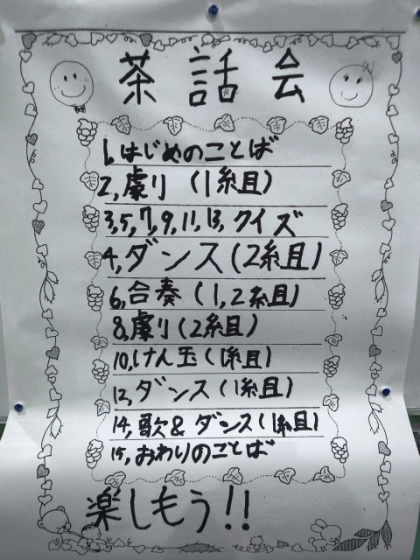 茶話会
1, はじめのことば
2, 劇り (1組)
3,5,7,9,11,13, クイズ
4, ダンス (2組)
6, 合奏 (1,2組)
8, 劇り (2組)
10, けん玉 (1組)
12, ダンス (1組)
14, 歌&ダンス (1組)
15, おわりのことば
楽しもう!!